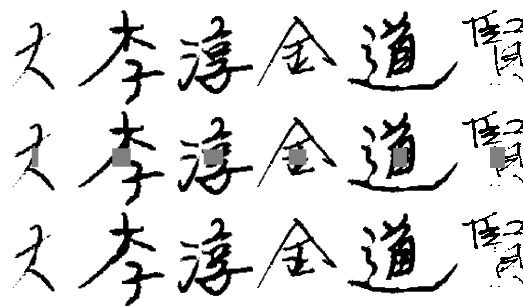 大李淳全道賢
大李淳全道賢
大李淳全道賢